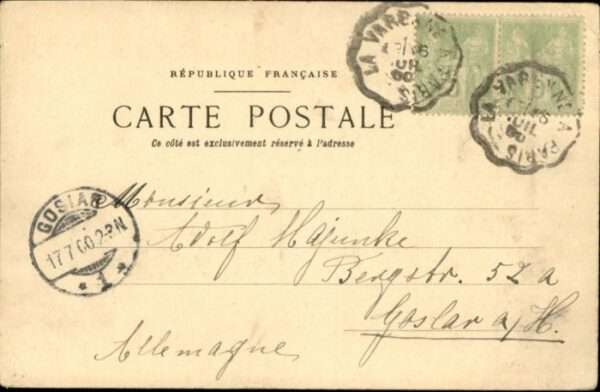 LA VARENNE A PARIS
LA VARENNE A PARIS
RÉPUBLIQUE FRANÇAISE
CARTE POSTALE
Ce côté est exclusivement réservé à l'adresse
GOSLAR
17.7.00.2-3N
* 1 *
Monsieur
Adolf Hajunke
Bergstr. 52 a
Goslar a/H.
Allemagne